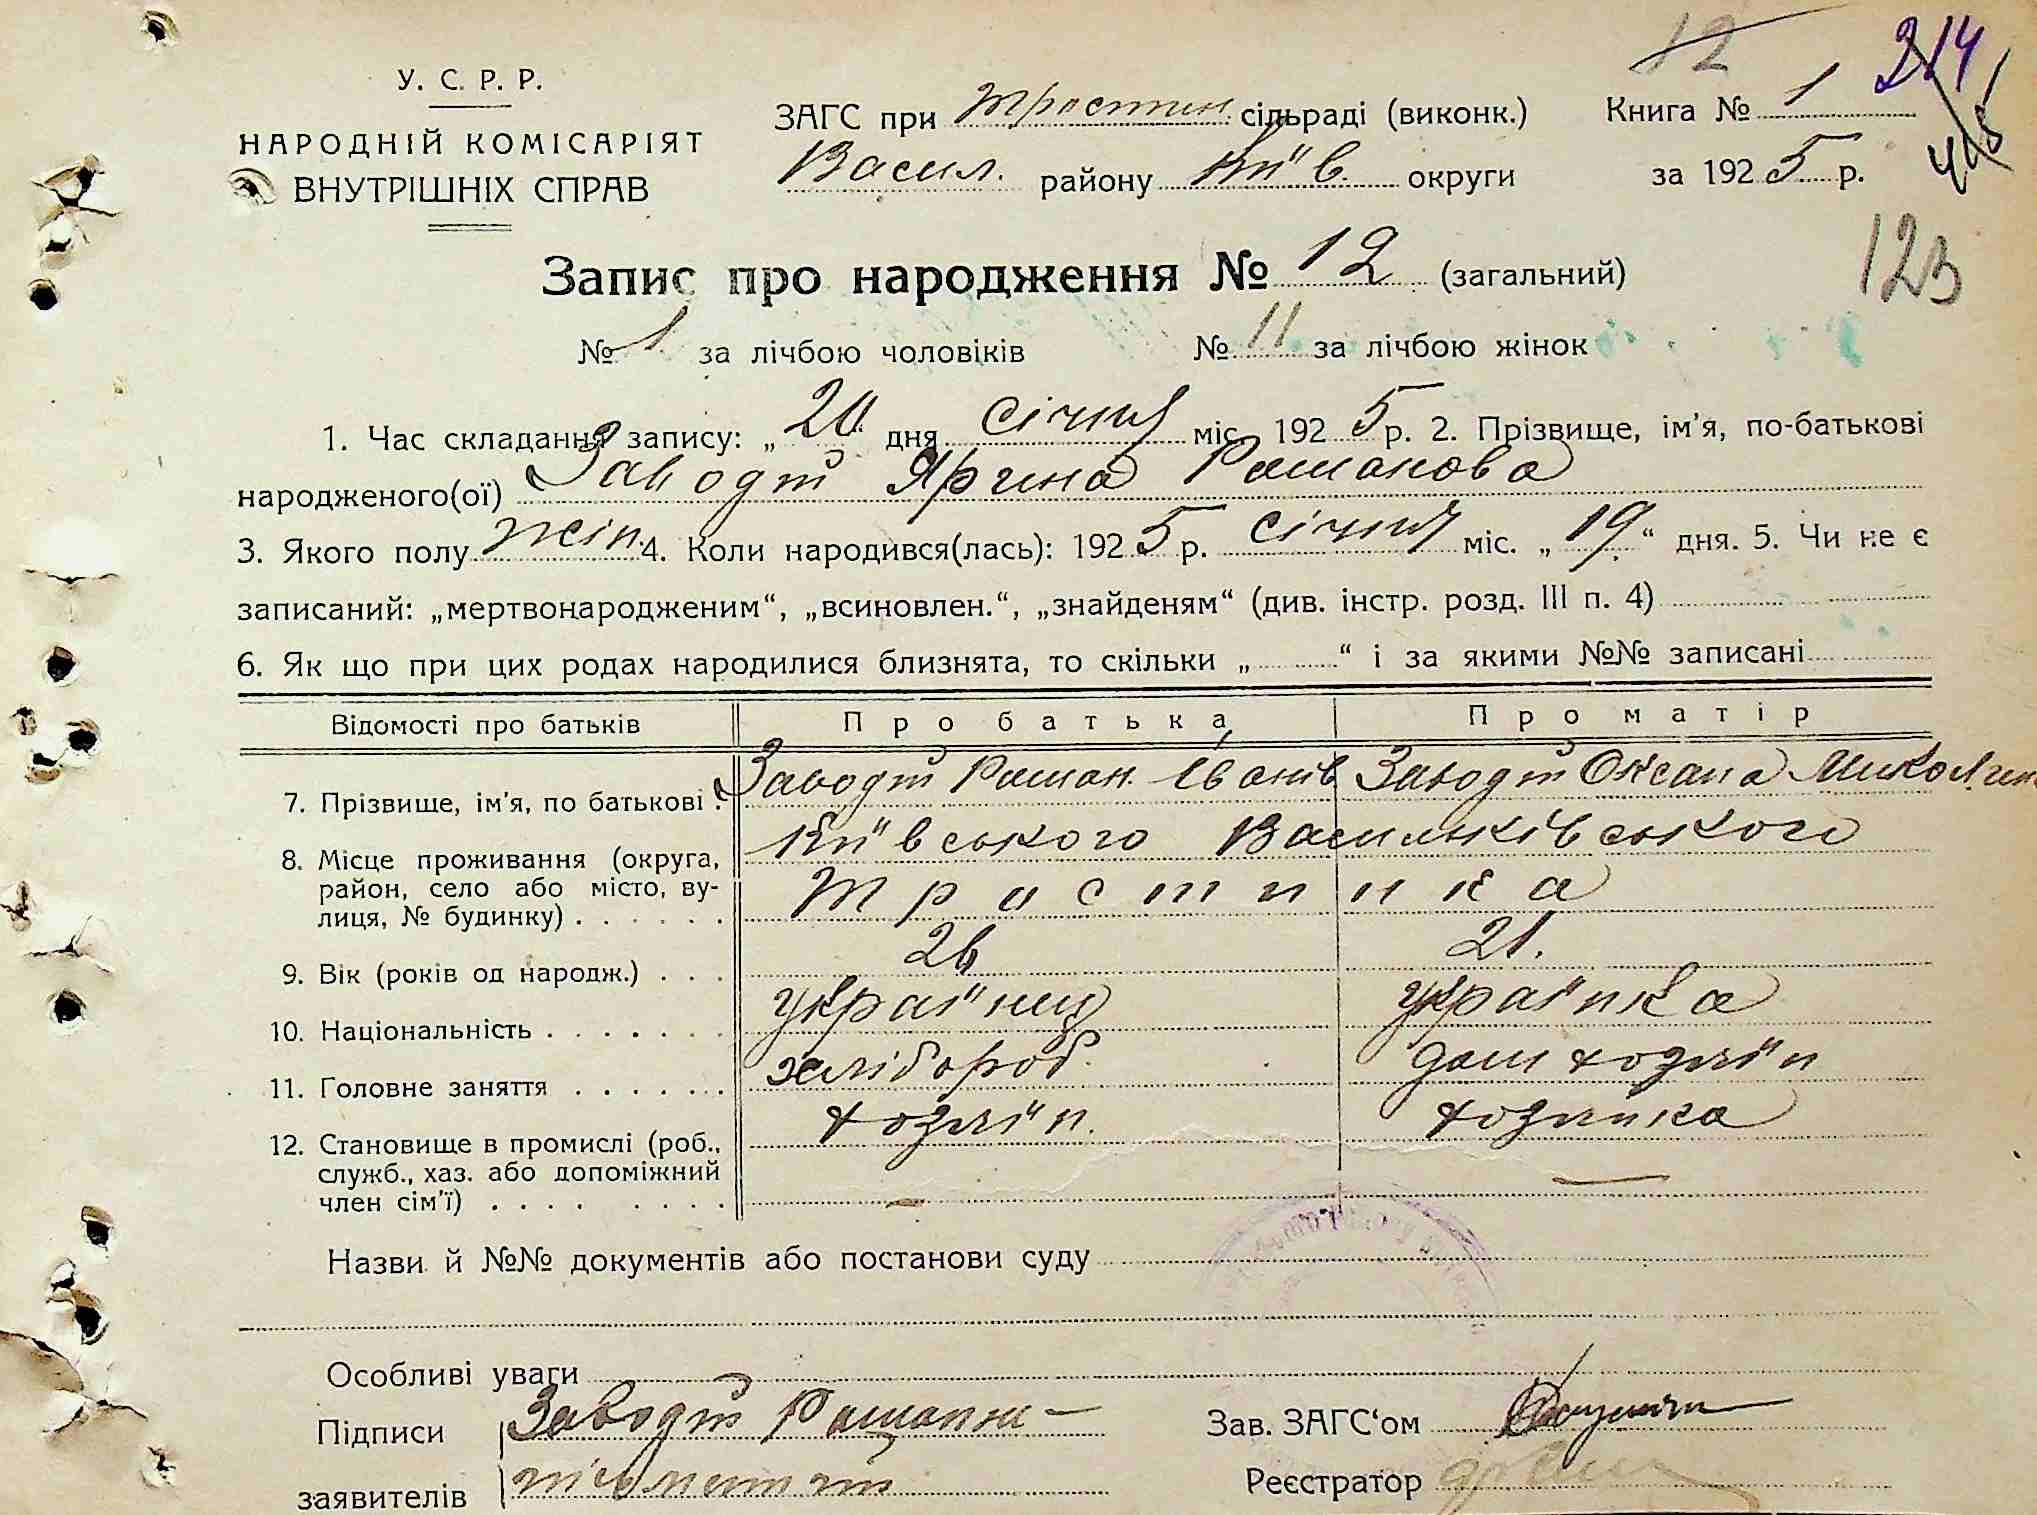 12 214
У. С. Р. Р.
ЗАГС при Тростин. сільраді (виконк.) Книга № 1
445
НАРОДНІЙ КОМІСАРІЯТ
ВНУТРІШНІХ СПРАВ
Васил. району Київ. округи за 1925 р.
123
Запис про народження № 12 (загальний)
№ 1 за лічбою чоловіків № 11 за лічбою жінок
1. Час складання запису: „20“ дня січня міс. 1925 р. 2. Прізвище, ім'я, по-батькові
народженого(ої) Заводт Ярина Романова
3. Якого полу жін. 4. Коли народився(лась): 1925 р. січня міс. „19“ дня. 5. Чи не є
записаний: „мертвонародженим“, „всиновлен.“, „знайденям“ (див. інстр. розд. III п. 4)
6. Як що при цих родах народилися близнята, то скільки „ “ і за якими №№ записані
Відомості про батьків Про батька Про матір
7. Прізвище, ім'я, по батькові Заводт Роман Іванів Заводт Оксана Миколин
8. Місце проживання (округа, Київського Васильківського
район, село або місто, ву-
лиця, № будинку) Тростинка
9. Вік (років од народж.) 26 21.
10. Національність українец українка
11. Головне заняття хлібороб. дом хозяїн
12. Становище в промислі (роб., хозяїн. хозяйка
служб., хаз. або допоміжний
член сім'ї) — —
Назви й №№ документів або постанови суду
Особливі уваги
Підписи Заводт Роман —
заявителів
Зав. ЗАГС'ом
Реєстратор